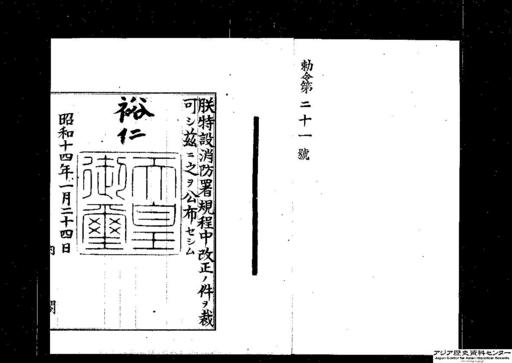 勅令第二十一號
朕特設消防署規程中改正ノ件ヲ裁
可シ茲ニ之ヲ公布セシム
裕仁
天皇御璽
昭和十四年一月二十四日
内閣
アジア歴史資料センター
Japan Center for Asian Historical Records